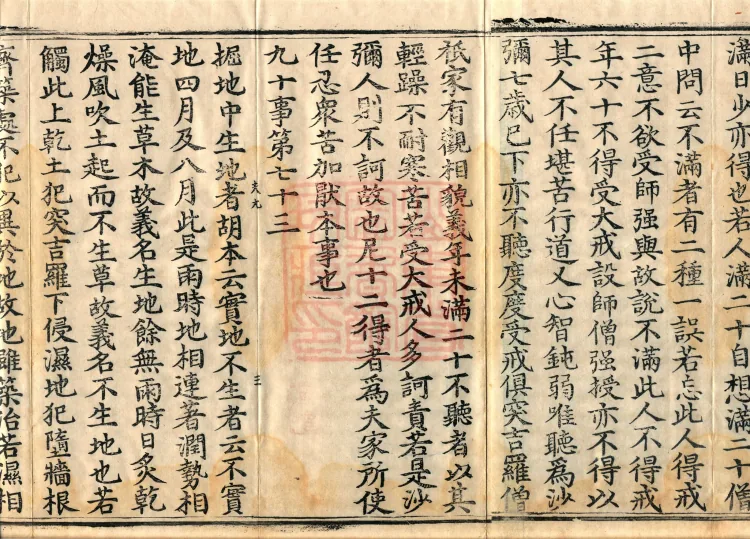 滿日少亦得也若人滿二十自想滿二十僧
中問云不滿者有二種一誤若忘此人得戒
二意不欲受師强與故說不滿此人不得戒
年六十不得受大戒設師僧强授亦不得以
其人不任堪苦行道又心智鈍弱唯聽爲沙
彌七歲已下亦不聽度度受戒俱突吉羅僧
祇家有觀相貌義年未滿二十不聽者以其
輕躁不耐寒苦若受大戒人多訶責若是沙
彌人則不訶故也尼十二得者爲夫家所使
任忍衆苦加猒本事也
九十事第七十三
掘地中生地者胡本云實地不生者云不實
地四月及八月此是雨時地相連著潤勢相
淹能生草木故義名生地餘無雨時日炙乾
燥風吹土起而不生草故義名不生地也若
觸此上乾土犯突吉羅下侵濕地犯墮牆根
齊築處不犯以異於地故地雖築治若濕相
三